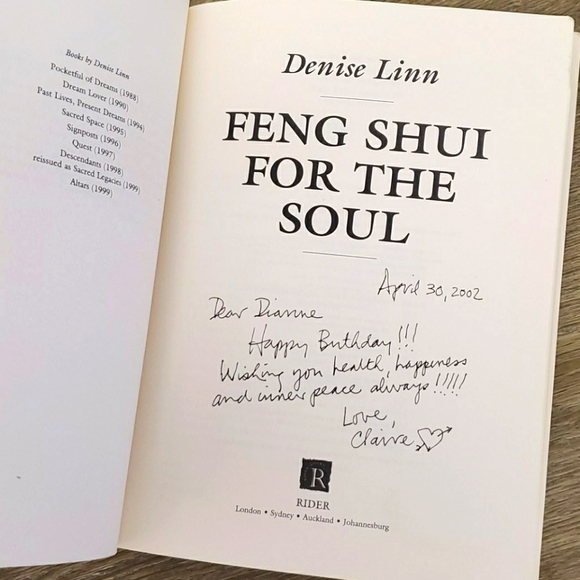 Books by Denise Linn
Pocketful of Dreams (1988)
Dream Lover (1990)
Past Lives, Present Dreams (1994)
Sacred Space (1995)
Signposts (1996)
Quest (1997)
Descendants (1998)
reissued as Sacred Legacies (1999)
Altars (1999)
Denise Linn
FENG SHUI
FOR THE
SOUL
April 30, 2002
Dear Dianne
Happy Birthday!!!
Wishing you health, happiness
and inner peace always!!!!!
Love,
Claire
R
RIDER
London • Sydney • Auckland • Johannesburg